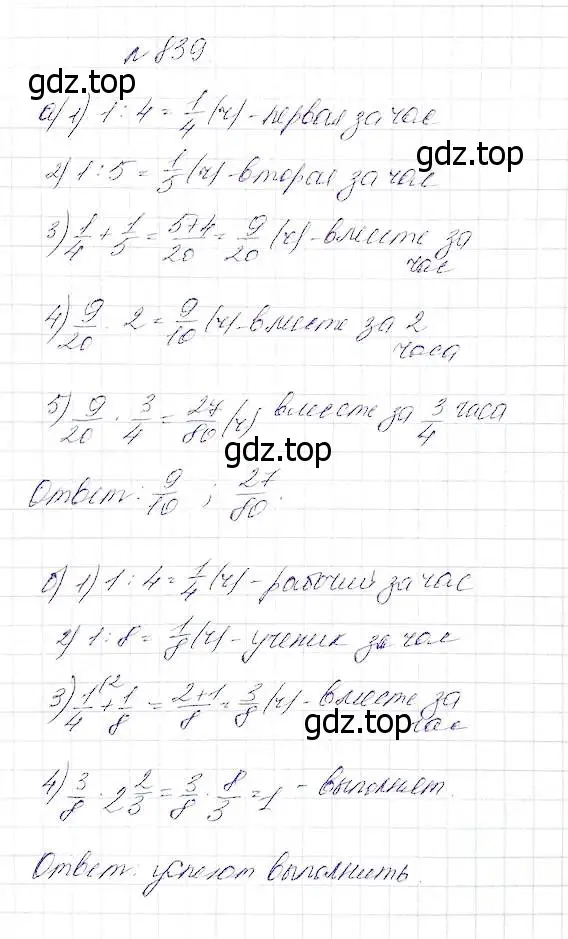 № 839
gdz.top
а) 1) 1 : 4 = 1/4 (ч) - первая за час
gdz.top
2) 1 : 5 = 1/5 (ч) - вторая за час
3) 1/4 + 1/5 = 5+4/20 = 9/20 (ч) - вместе за
час
4) 9/20 · 2 = 9/10 (ч) - вместе за 2
часа
5) 9/20 · 3/4 = 27/80 (ч) вместе за 3/4 часа
gdz.top
Ответ: 9/10 ; 27/80.
б) 1) 1 : 4 = 1/4 (ч) - рабочий за час
2) 1 : 8 = 1/8 (ч) - ученик за час
3) 1/4 (2 + 1/8 = 2+1/8 = 3/8 (ч) - вместе за
час
gdz.top
4) 3/8 · 2 2/3 = 3/8 · 8/3 = 1 - выполняет.
Ответ: успеют выполнить.